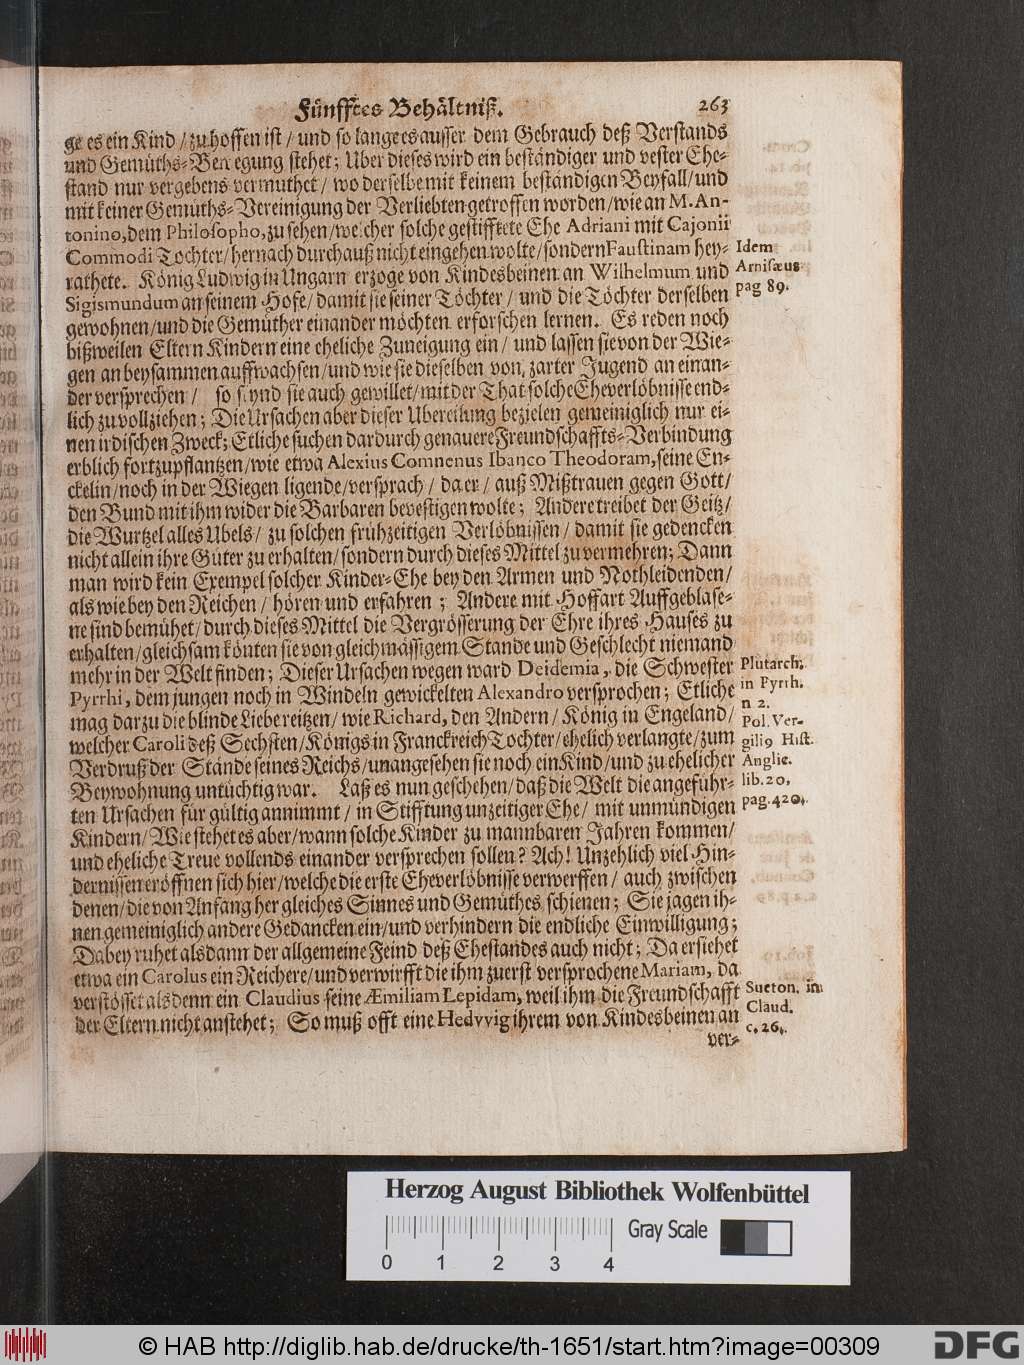 Fünfftes Behältniß. 263
ge es ein Kind / zu hoffen ist / und so lange es ausser dem Gebrauch deß Verstands
und Gemüths-Bewegung stehet; Uber dieses wird ein beständiger und vester Ehe-
stand nur vergebens vermuthet / wo derselbe mit keinem beständigen Beyfall / und
mit keiner Gemüths-Vereinigung der Verliebten getroffen worden / wie an M. An-
tonino, dem Philosopho, zu sehen / welcher solche gestifftete Ehe Adriani mit Cajonii
Commodi Tochter / hernach durchauß nicht eingehen wolte / sondern Faustinam hey-
rathete. König Ludwig in Ungarn erzoge von Kindesbeinen an Wilhelmum und
Sigismundum an seinem Hofe / damit sie seiner Töchter / und die Töchter derselben
gewohnen / und die Gemüther einander möchten erforschen lernen. Es reden noch
bißweilen Eltern Kindern eine eheliche Zuneigung ein / und lassen sie von der Wie-
gen an beysammen auffwachsen / und wie sie dieselben von zarter Jugend an einan-
der versprechen / so seynd sie auch gewillet / mit der That solche Eheverlöbnisse end-
lich zu vollziehen; Die Ursachen aber dieser Ubereilung bezielen gemeiniglich nur ei-
nen irdischen Zweck; Etliche suchen dardurch genauere Freundschaffts-Verbindung
erblich fortzupflantzen / wie etwa Alexius Comnenus Ibanco Theodoram, seine En-
ckelin / noch in der Wiegen ligende / versprach / da er / auß Mißtrauen gegen Gott /
den Bund mit ihm wider die Barbaren bevestigen wolte; Andere treibet der Geitz /
die Wurtzel alles Ubels / zu solchen frühzeitigen Verlöbnissen / damit sie gedencken
nicht allein ihre Güter zu erhalten / sondern durch dieses Mittel zu vermehren; Dann
man wird kein Exempel solcher Kinder-Ehe bey den Armen und Nothleidenden /
als wie bey den Reichen / hören und erfahren; Andere mit Hoffart Auffgeblase-
ne sind bemühet / durch dieses Mittel die Vergrösserung der Ehre ihres Hauses zu
erhalten / gleichsam könten sie von gleichmässigem Stande und Geschlecht niemand
mehr in der Welt finden; Dieser Ursachen wegen ward Deidemia, die Schwester
Pyrrhi, dem jungen noch in Windeln gewickelten Alexandro versprochen; Etliche
mag darzu die blinde Liebe reitzen / wie Richard, den Andern / König in Engeland /
welcher Caroli deß Sechsten / Königs in Franckreich Tochter / ehelich verlangte / zum
Verdruß der Stände seines Reichs / unangesehen sie noch ein Kind / und zu ehelicher
Beywohnung untüchtig war. Laß es nun geschehen / daß die Welt die angeführ-
ten Ursachen für gültig annimmt / in Stifftung unzeitiger Ehe / mit unmündigen
Kindern / Wie stehet es aber / wann solche Kinder zu mannbaren Jahren kommen /
und eheliche Treue vollends einander versprechen sollen? Ach! Unzehlich viel Hin-
dernissen eröffnen sich hier / welche die erste Eheverlöbnisse verwerffen / auch zwischen
denen / die von Anfang her gleiches Sinnes und Gemüthes schienen; Sie jagen ih-
nen gemeiniglich andere Gedancken ein / und verhindern die endliche Einwilligung;
Dabey ruhet alsdann der allgemeine Feind deß Ehestandes auch nicht; Da ersiehet
etwa ein Carolus ein Reichere / und verwirfft die ihm zuerst versprochene Mariam, da
verstösset alsdenn ein Claudius seine Æmiliam Lepidam, weil ihm die Freundschafft
der Eltern nicht anstehet; So muß offt eine Hedvvig ihrem von Kindesbeinen an
ver-
Idem
Arnisæus
pag 89.
Plutarch.
in Pyrrh.
n 2.
Pol. Ver-
gili9 Hist.
Anglic.
lib. 20,
pag. 420.
Sueton. in
Claud.
c. 26.
Herzog August Bibliothek Wolfenbüttel
Gray Scale
0 1 2 3 4
© HAB http://diglib.hab.de/drucke/th-1651/start.htm?image=00309
DFG